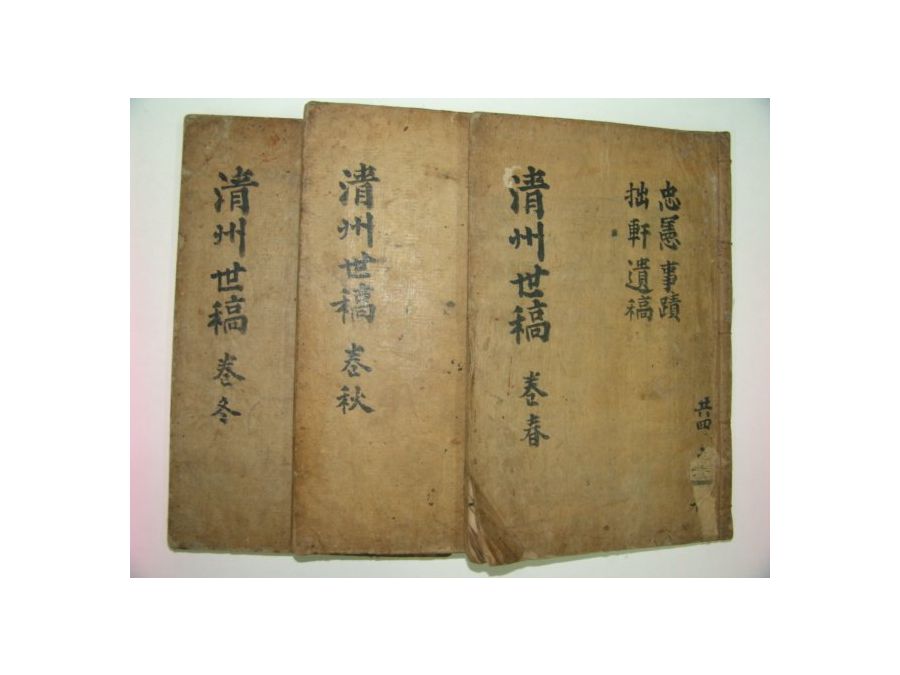 忠憲事蹟
拙軒遺稿
清州世稿 卷春
共四
清州世稿 卷秋
清州世稿 卷冬